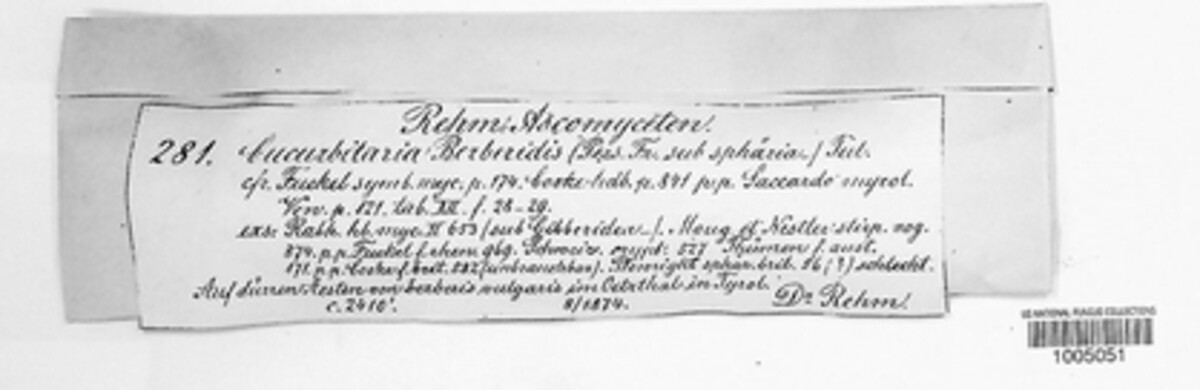 Rehm: Ascomyceten.
281. Cucurbitaria Berberidis (Pers. Fr. sub sphäria.) Tul.
cfr. Fuckel symb. myc. p. 174. Cooke hdb. p. 841 p.p. Saccardo mycol.
Ven. p. 121. tab. XII. f. 28-29.
exs: Rabh. hb. myc. II 653 (sub Gibberidea). Moug. et Nestler stirp. vog.
874. p.p. Fuckel f. rhen. 969. Schweiz. crypt: 527 Thümen f. aust.
171. p.p. Cooke f. brit. 232 (unbrauchbar). Plowright sphär. brit. 56 (?) schlecht.
Auf dürren Aesten von berberis vulgaris im Oetzthal in Tyrol.
c. 2410'. 8/1874. Dr Rehm.
US NATIONAL FUNGUS COLLECTIONS
1005051